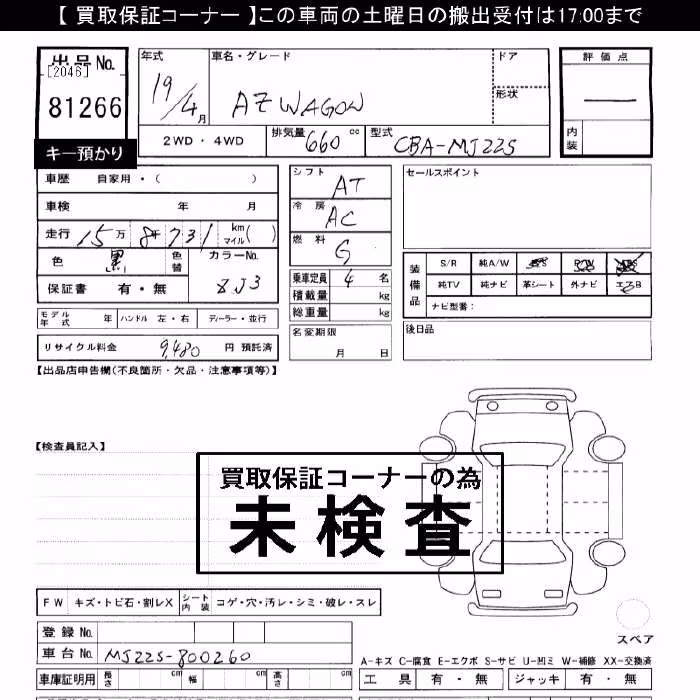 【 買取保証コーナー 】この車両の土曜日の搬出受付は17:00まで
出品No.
[2046]
81266
キー預かり
年式 車名・グレード ドア
19/4月 AZ WAGON 形状
2WD・4WD 排気量 660 cc 型式 CBA-MJ22S
評価点
内装
車歴 自家用・( )
車検 年 月
走行 15万 8千731 km マイル( )
色 黒 色替 カラーNo. ZJ3
保証書 有・無
シフト AT
冷房 AC
燃料 G
乗車定員 4 名
積載量 kg
総重量 kg
名変期限 月 日
セールスポイント
装備品 S/R 純A/W P/S P/W エアコン
純TV 純ナビ 革シート 外ナビ エアB
ナビ型番:
後日品
モデル年式 年 ハンドル 左・右 ディーラー・並行
リサイクル料金 9,480 円 預託済
【出品店申告欄(不良箇所・欠品・注意事項等)】
【検査員記入】
買取保証コーナーの為
未検査
FW キズ・トビ石・割レX シート内装 コゲ・穴・汚レ・シミ・破レ・スレ
スペア
登録No.
車台No. MJ22S-800260
A-キズ C-腐食 E-エクボ S-サビ U-凹ミ W-補修 XX-交換済
車庫証明用 長さ cm 幅 cm 高さ cm
工具 有・無 ジャッキ 有・無